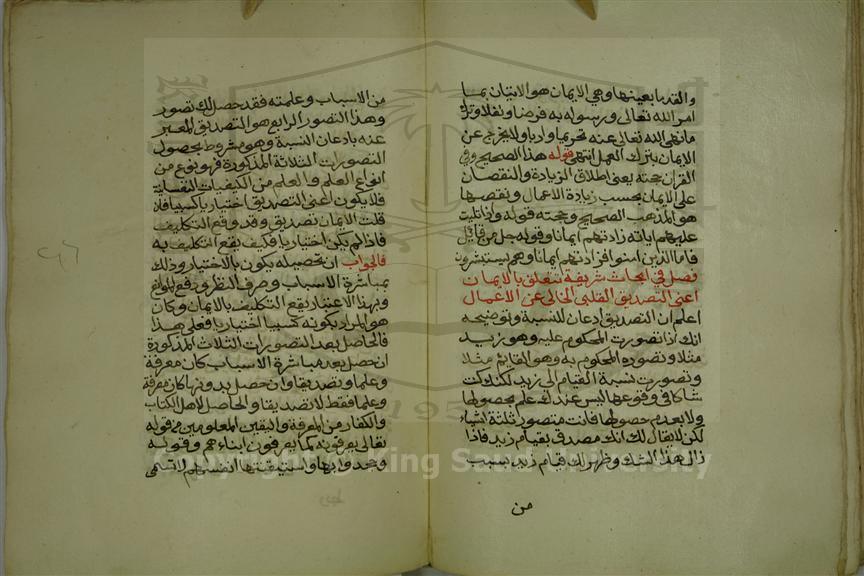 والقدما بعينها وهي الايمان هو الاتيان بما
امر الله تعالى ورسوله به فرضا ونفلا وترك
ما نهى الله تعالى عنه تحريما وادبا ولا يخرج عن
الايمان بترك العمل انتهى قوله هذا الصحيح وفي
القران حجته يعنى اطلاق الزيادة والنقصان
على الايمان بحسب زيادة الاعمال ونقصها
هو المذهب الصحيح وحجته قوله واذا تليت
عليهم اياته زادتهم ايمانا وقوله جل من قائل
فاما الذين امنوا فزادتهم ايمانا وهم يستبشرون
فصل في ابحاث شريفة تتعلق بالايمان
اعنى التصديق القلبى الخالى عن الاعمال
اعلم ان التصديق ادعان للنسبة وتوضيحه
انك اذا تصورت المحكوم عليه وهو زيد
مثلا وتصوره المحكوم به وهو القائم مثلا
وتصورت نسبة القيام الى زيد لكنك كنت
شاكا في وقوعها ليس عندك علم بحصولها
ولا بعدم حصولها فانت متصور ثلثة اشياء
لكن لا يقال لك انك مصدق بقيام زيد فاذا
زال هذا الشك وظهر لك قيام زيد بسبب
من
من الاسباب وعلمته فقد حصل لك تصور
وهذا التصور الرابع هو التصديق المعبر
عنه بادعان النسبة وهو مشروط بحصول
التصورات الثلاثة المذكورة فهو نوع من
انواع العلم والعلم من الكيفيات النفسانية
فلا يكون اعنى التصديق اختياريا كسبيا فان
قلت الايمان تصديق وقد وقع التكليف
فاذا لم يكن اختياريا فكيف يقع التكليف به
فالجواب ان تحصيله يكون بالاختيار وذلك
بمباشرة الاسباب وصرف النظر ورفع الموانع
وبهذا الاعتبار يقع التكليف بالايمان وكان
هو المراد بكونه كسبيا اختياريا فعلى هذا
فالحاصل بعد التصورات الثلاث المذكورة
ان حصل بعد مباشرة الاسباب كان معرفة
وعلما وتصديقا وان حصل بدونها كان معرفة
وعلما فقط لا تصديقا والحاصل لاهل الكتاب
والكفار من المعرفة واليقين المعلومين من قوله
تعالى يعرفونه كما يعرفون ابناءهم وقوله
وجحدوا بها واستيقنتها انفسهم لا تسمى
Copyright © King Saud University
195